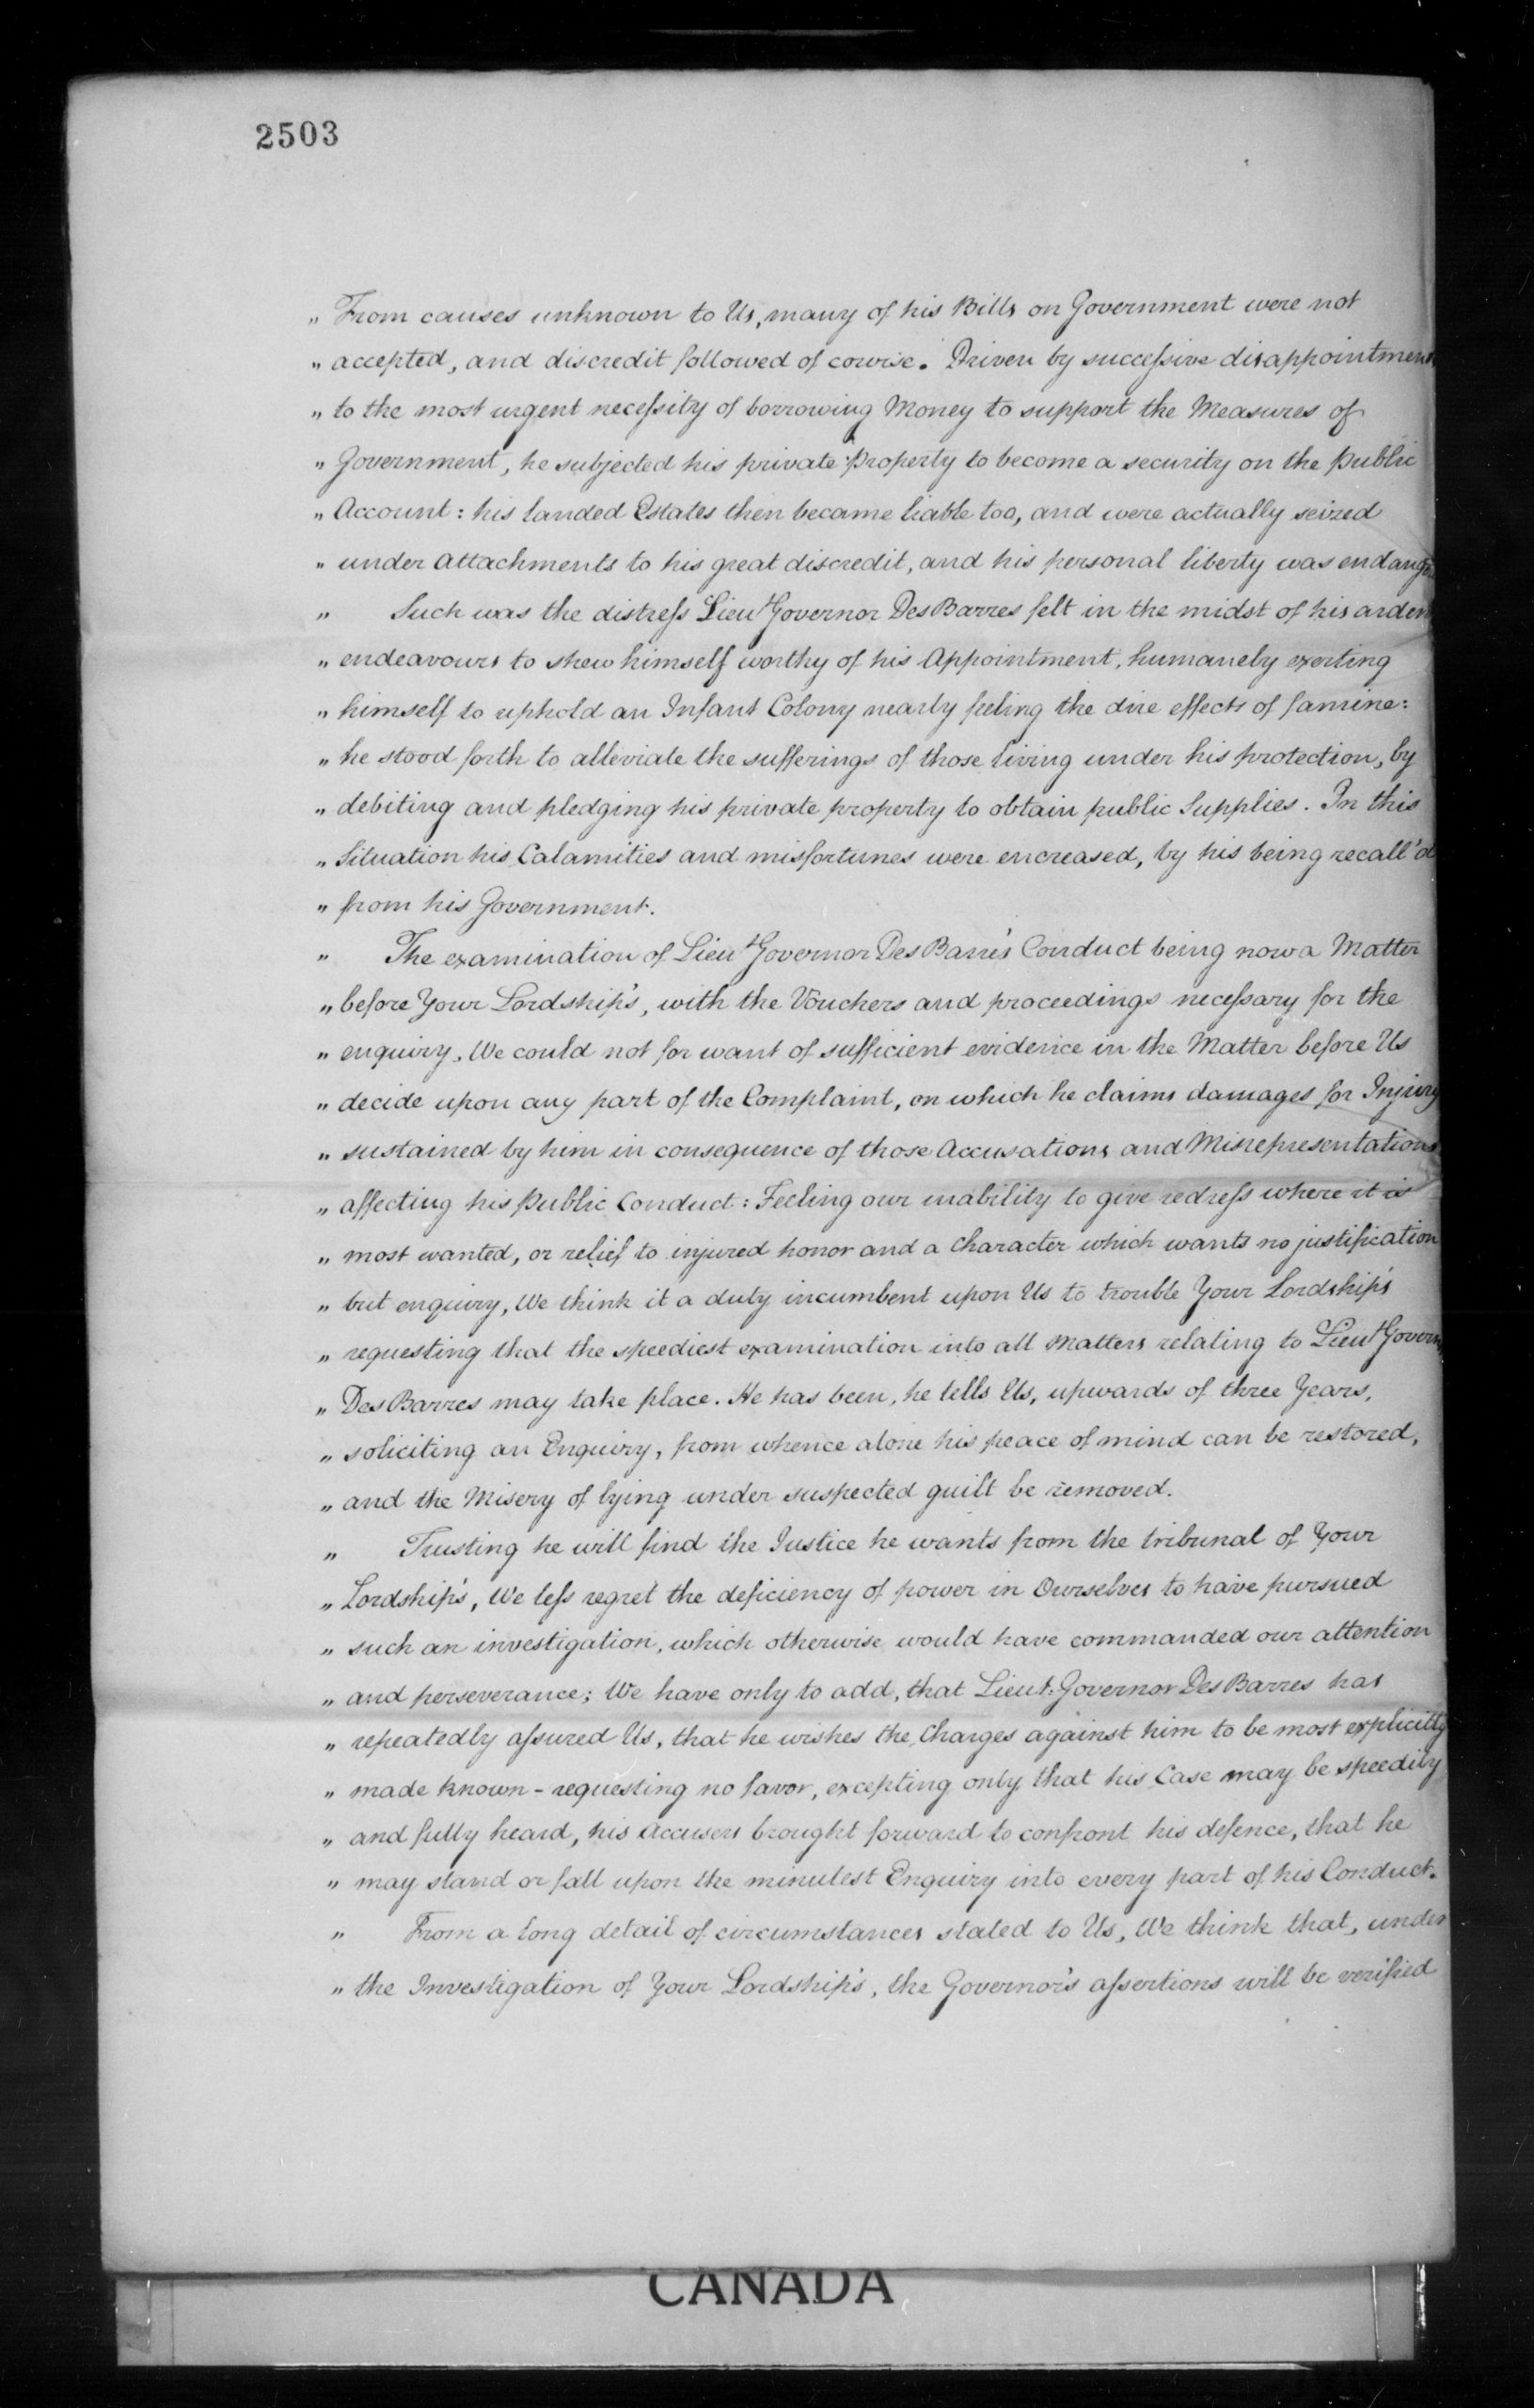 2503
„ From causes unknown to Us, many of his Bills on Government were not
„ accepted, and discredit followed of course. Driven by succeſsive disappointmen
„ to the most urgent neceſsity of borrowing Money to support the Measures of
„ Government, he subjected his private Property to become a security on the Public
„ Account: his landed Estates then became liable too, and were actually seized
„ under Attachments to his great discredit, and his personal liberty was endang
„ Such was the distreſs Lieuᵗ Governor DesBarres felt in the midst of his arden
„ endeavours to shew himself worthy of his Appointment, humanely exerting
„ himself to uphold an Infant Colony nearly feeling the dire effects of famine:
„ he stood forth to alleviate the sufferings of those living under his protection, by
„ debiting and pledging his private property to obtain public Supplies. In this
„ Situation his Calamities and misfortunes were encreased, by his being recall'd
„ from his Government.
„ The examination of Lieuᵗ Governor Des Barre's Conduct being now a Matter
„ before Your Lordship's, with the Vouchers and proceedings neceſsary for the
„ enquiry. We could not for want of sufficient evidence in the Matter before Us
„ decide upon any part of the Complaint, on which he claims damages for Injury
„ sustained by him in consequence of those Accusations and Misrepresentations
„ affecting his Public Conduct: Feeling our inability to give redreſs where it is
„ most wanted, or relief to injured honor and a Character which wants no justification
„ but enquiry, We think it a duty incumbent upon Us to trouble Your Lordship's
„ requesting that the speediest examination into all Matters relating to Lieuᵗ Govern
„ Des Barres may take place. He has been, he tells Us, upwards of three Years,
„ soliciting an Enquiry, from whence alone his peace of mind can be restored,
„ and the Misery of lying under suspected guilt be removed.
„ Trusting he will find the Justice he wants from the tribunal of Your
„ Lordship's, We leſs regret the deficiency of power in Ourselves to have pursued
„ such an investigation, which otherwise would have commanded our attention
„ and perseverance; We have only to add, that Lieut. Governor Des Barres has
„ repeatedly aſsured Us, that he wishes the Charges against him to be most explicitly
„ made known - requesting no favor, excepting only that his Case may be speedily
„ and fully heard, his Accusers brought forward to confront his defence, that he
„ may stand or fall upon the minutest Enquiry into every part of his Conduct.
„ From a long detail of circumstances stated to Us, We think that, under
„ the Investigation of Your Lordship's, the Governor's aſsertions will be verified
CANADA